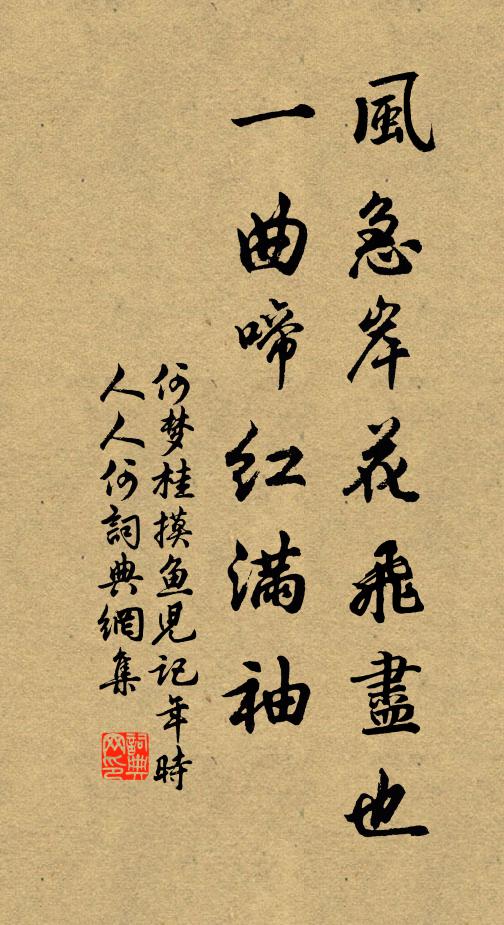 風急岸花飛盡也
一曲啼紅滿袖
何梦桂摸魚児記年時
人人何詞典網集
詞典
网印